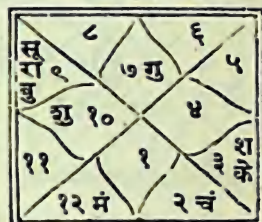 ८ ६
सू
रा ९ ७ गु ५
बु
शु १० ४
११ १ ३ श
के
१२ मं २ चं